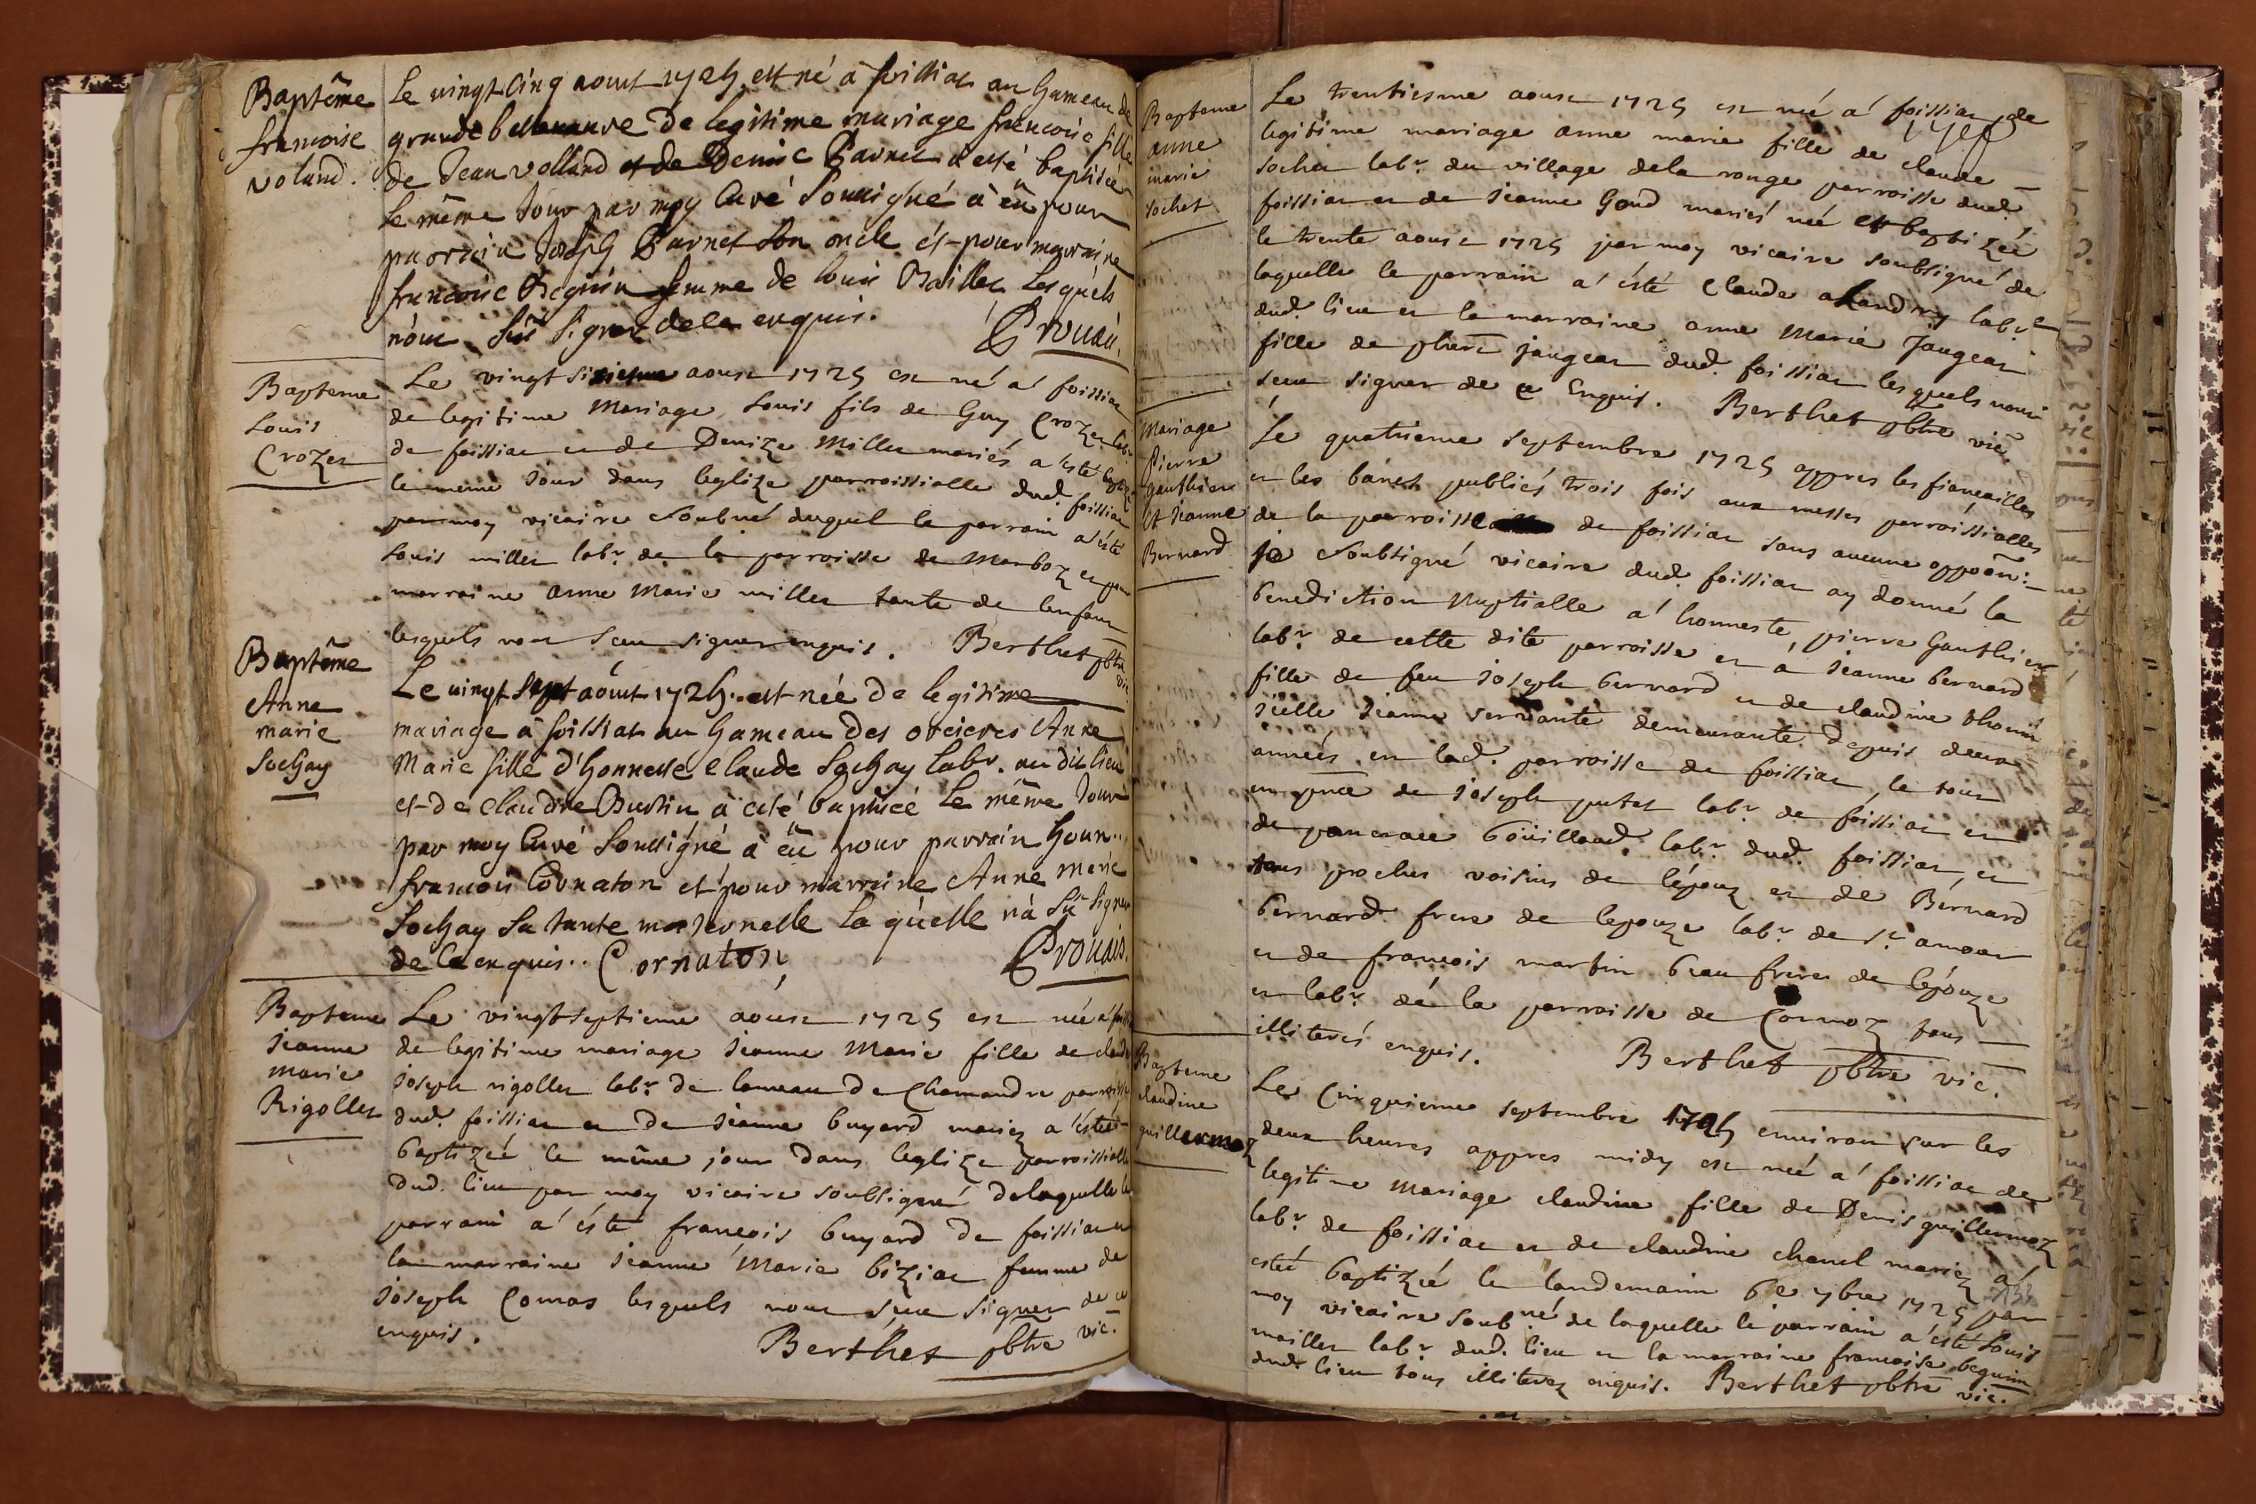 Baptême
francoise
voland.
Le vingt cinq aout 1725 est né à foissiat au hameau de
grande bellenauve de legitime mariage francoise fille
de Jean volland et de Denise Parnet a esté baptisée
le même Jour par moy Curé Soussigné à eu pour
parrain Joseph Parnet Son oncle et pour marraine
francoise Beguin femme de louis Baillet Lesquels
n'ont Sù Signer de ce enquis. Prouais.
Bapteme
Louis
Crozet
Le vingt sixieme aoust 1725 est né a foissiat
de legitime mariage Louis fils de Guy Crozet labr.
de foissiat et de Denize Millet mariés a esté baptizé
le meme jour dans leglize parroissialle dud. foissiat
par moy vicaire Soubné duquel le parrain a esté
Louis millet labr. de la parroisse de Marboz et pour
marraine anne Marie millet tante de lenfant
lesquels nont sceu signer enquis. Berthet pbtre vic.
Baptême
Anne
marie
Sochay
Le vingt sept aout 1725. est née de legitime
mariage à foissiat au hameau des orcieres Anne
Marie fille d'honneste Claude Sochay labr. au dit lieu
et de claudine Bustin à esté baptisée le même Jour
par moy Curé Soussigné à eu pour parrain hon..
francois Cornaton et pour marraine Anne marie
Sochay Sa tante maternelle la quelle n'a Sù Signer
de ce enquis.. Cornaton Prouais.
Bapteme
jeanne
marie
Rigollet
Le vingtseptieme aoust 1725 est née a foissiat
de legitime mariage jeanne Marie fille de claude
joseph rigollet labr. de lameau de Chamandre parroisse
dud. foissiat et de jeanne buyard mariez a esté
baptizée le même jour dans leglize parroissialle
dud. lieu par moy vicaire soubsigné de laquelle le
parrain a esté francois buyard de foissiat et
la marraine jeanne Marie biziat femme de
joseph Comas lesquels nont sceu signer de ce
enquis. Berthet pbtre vic.
Bapteme
anne
marie
sochet
Le trentiesme aoust 1725 est née a foissiat de
legitime mariage anne marie fille de claude
sochet labr. du village de la ronge parroisse dud.
foissiat et de jeanne Goud mariés née et baptizée
le trente aoust 1725 par moy vicaire soubsigné de
laquelle le parrain a esté Claude Landry labr.
dud. lieu et la marraine anne Marie Jangeat
fille de jangeat dud. foissiat lesquels nont
sceu signer de ce Enquis. Berthet pbtre vic.
Mariage
Pierre
gauthier
et Jeanne
Bernard
Le quatrieme septembre 1725 appres les fiancailles
et les bancts publiés trois fois aux messes parroissialles
de la parroisse de foissiat sans aucune oppoõn
je Soubsigné vicaire dud. foissiat ay donné la
benediction nuptialle a honneste pierre Gauthier
labr. de cette dite parroisse et a jeanne bernard
fille de feu joseph bernard et de claudine thonin
icelle jeanne servante demeurante depuis deux
années en lad. parroisse de foissiat, le tout
en pnce de joseph putet labr. de foissiat et
de pancrace boüilloud labr. dud. foissiat et
tous proches voisins de lépoux et de Bernard
bernard frere de lepouze labr. de st. amour
et de francois martin beau frere de lépouze
et labr. de la parroisse de Cormoz tous
illiterés enquis. Berthet pbtre vic.
Bapteme
claudine
guillermoz
Le Cinquieme septembre 1725 environ sur les
deux heures appres midy est née a foissiat de
legitime Mariage claudine fille de Denis guillermoz
labr. de foissiat et de claudine chanel mariez a
esté baptizée le landemain 6e 7bre 1725 par
moy vicaire soubné de laquelle le parrain a esté Louis
maillet labr. dud. lieu et la marraine francoise beguin
dud. lieu tous illiterez enquis. Berthet pbtre vic.